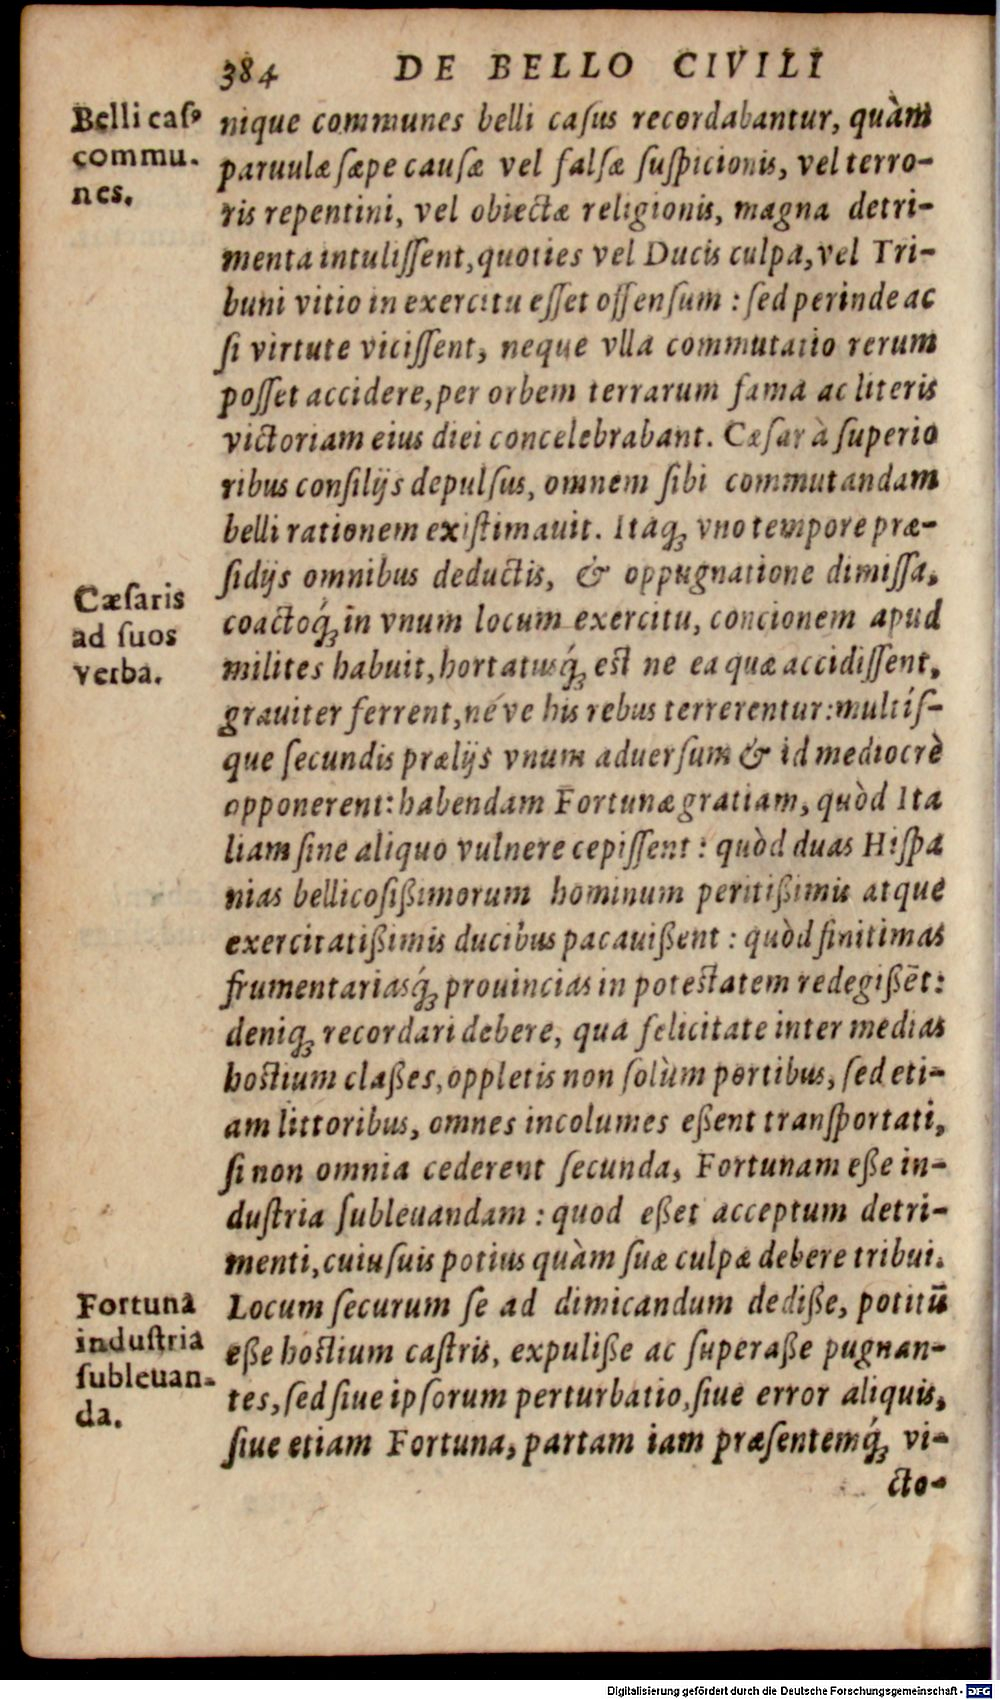 384 DE BELLO CIVILI
Belli casꝰ
commu-
nes.
nique communes belli caſus recordabantur, quàm
paruulæ ſæpe cauſæ vel falſæ ſuſpicionis, vel terro-
ris repentini, vel obiectæ religionis, magna detri-
menta intuliſſent, quoties vel Ducis culpa, vel Tri-
buni vitio in exercitu eſſet offenſum : ſed perinde ac
ſi virtute viciſſent, neque vlla commutatio rerum
poſſet accidere, per orbem terrarum fama ac literis
victoriam eius diei concelebrabant. Cæſar à ſuperio
ribus conſilijs depulſus, omnem ſibi commutandam
belli rationem exiſtimauit. Itaq; vno tempore præ-
ſidijs omnibus deductis, & oppugnatione dimiſſa,
coactoq́; in vnum locum exercitu, concionem apud
milites habuit, hortatusq́; est ne ea quæ accidiſſent,
grauiter ferrent, néve his rebus terrerentur: multíſ-
que ſecundis prælijs vnum aduerſum & id mediocrè
opponerent: habendam Fortunæ gratiam, quòd Ita
liam ſine aliquo vulnere cepiſſent : quòd duas Hiſpa
nias bellicoſißimorum hominum peritißimis atque
exercitatißimis ducibus pacauißent : quòd finitimas
frumentariasq́; prouincias in potestatem redegißēt:
deniq; recordari debere, qua felicitate inter medias
hostium claßes, oppletis non ſolùm portibus, ſed eti-
am littoribus, omnes incolumes eßent tranſportati,
ſi non omnia cederent ſecunda, Fortunam eße in-
duſtria ſubleuandam : quod eßet acceptum detri-
menti, cuiuſuis potius quàm ſuæ culpæ debere tribui.
Locum ſecurum ſe ad dimicandum dediße, potitū
eße hostium caſtris, expuliße ac ſuperaße pugnan-
tes, ſed ſiue ipſorum perturbatio, ſiue error aliquis,
ſiue etiam Fortuna, partam iam præſentemq́; vi-
cto-
Cæſaris
ad ſuos
verba.
Fortuna
induſtria
ſubleuan-
da.
Digitalisierung gefördert durch die Deutsche Forschungsgemeinschaft - DFG